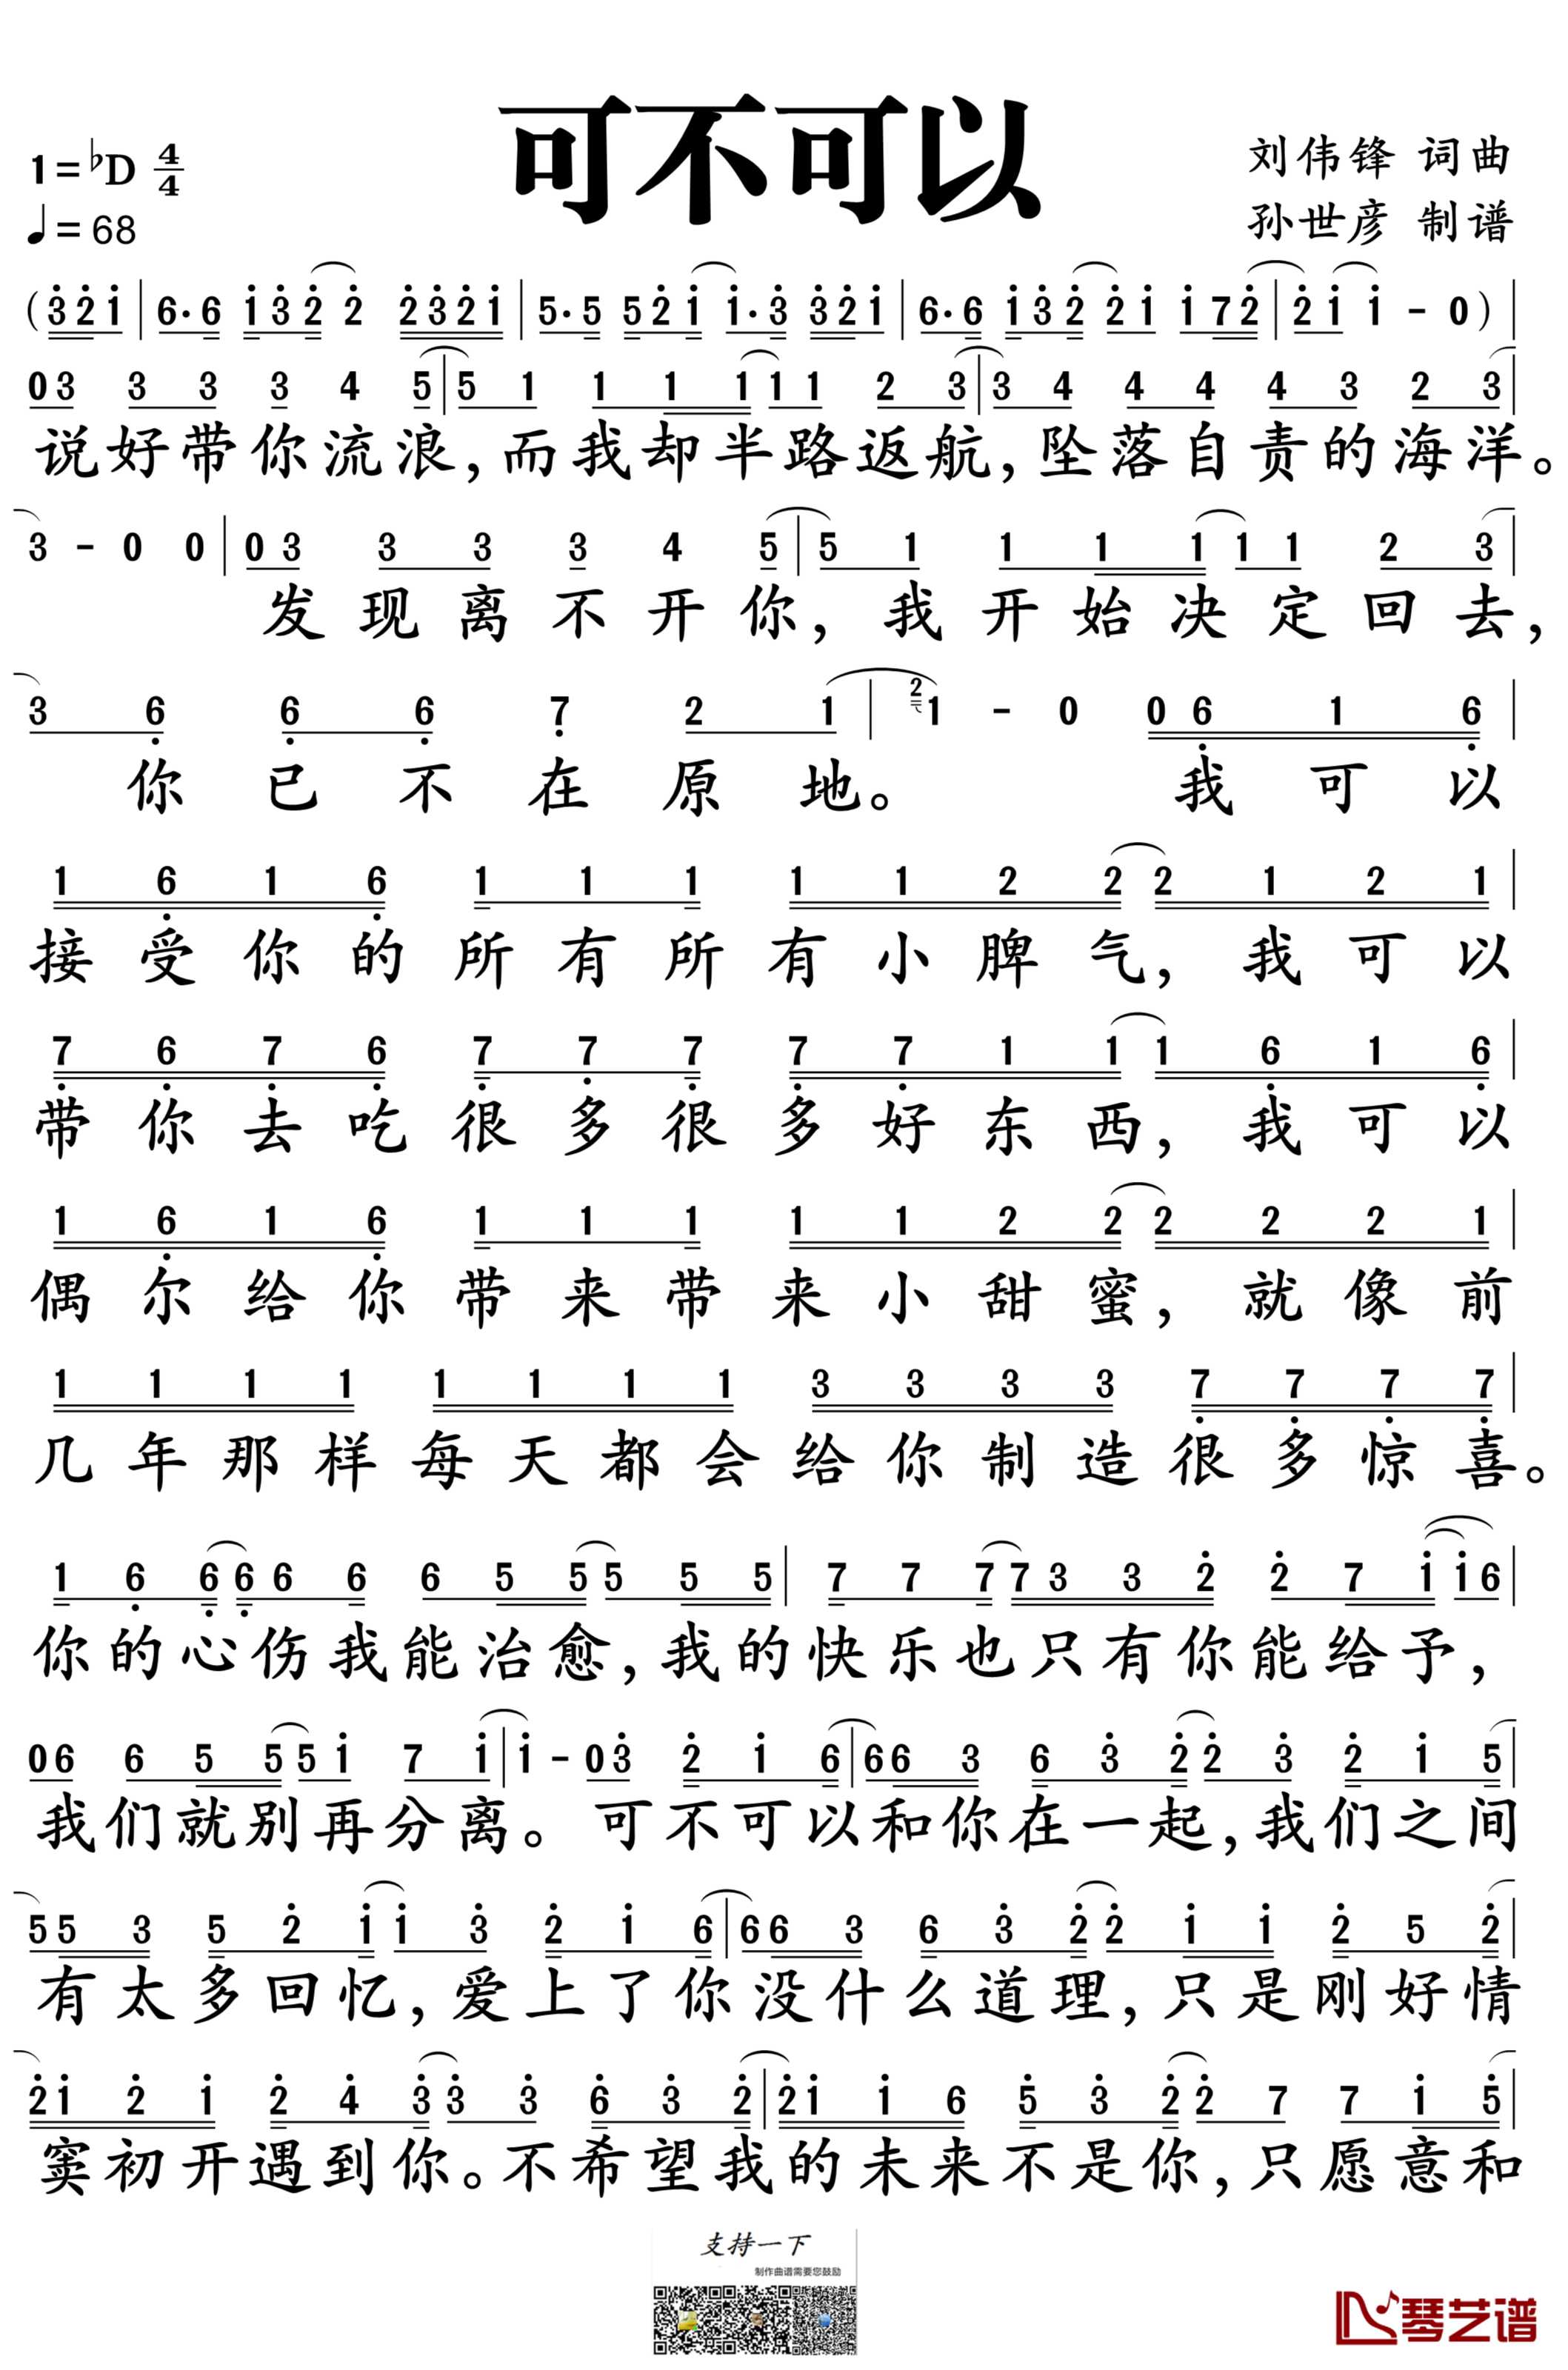 可不可以
1=♭D 4/4
♩=68
刘伟锋 词曲
孙世彦 制谱
(3 2 1 | 6· 6 1 3 2 2 2 3 2 1 | 5· 5 5 2 1 1· 3 3 2 1 | 6· 6 1 3 2 2 1 1 7 2 | 2 1 1 - 0) |
0 3 3 3 3 4 5 | 5 1 1 1 1 1 1 2 3 | 3 4 4 4 4 3 2 3 |
说好带你流浪,而我却半路返航,坠落自责的海洋。
3 - 0 0 | 0 3 3 3 3 4 5 | 5 1 1 1 1 1 1 2 3 |
发现离不开你,我开始决定回去,
3 6 6 6 7 2 1 | 2 1 - 0 0 6 1 6 |
你已不在原地。 我可以
1 6 1 6 1 1 1 1 1 2 2 2 1 2 1 |
接受你的所有所有小脾气,我可以
7 6 7 6 7 7 7 7 7 1 1 1 6 1 6 |
带你去吃很多很多好东西,我可以
1 6 1 6 1 1 1 1 1 2 2 2 2 2 1 |
偶尔给你带来带来小甜蜜,就像前
1 1 1 1 1 1 1 1 3 3 3 3 7 7 7 7 |
几年那样每天都会给你制造很多惊喜。
1 6 6 6 6 6 6 5 5 5 5 5 | 7 7 7 7 3 3 2 2 7 1 1 6 |
你的心伤我能治愈,我的快乐也只有你能给予,
0 6 6 5 5 5 1 7 1 | 1 - 0 3 2 1 6 | 6 6 3 6 3 2 2 3 2 1 5 |
我们就别再分离。可不可以和你在一起,我们之间
5 5 3 5 2 1 1 3 2 1 6 | 6 6 3 6 3 2 2 1 1 2 5 2 |
有太多回忆,爱上了你没什么道理,只是刚好情
2 1 2 1 2 4 3 3 3 6 3 2 | 2 1 1 6 5 3 2 2 7 7 1 5 |
窦初开遇到你。不希望我的未来不是你,只愿意和
支持一下
制作曲谱需要您鼓励
琴艺谱